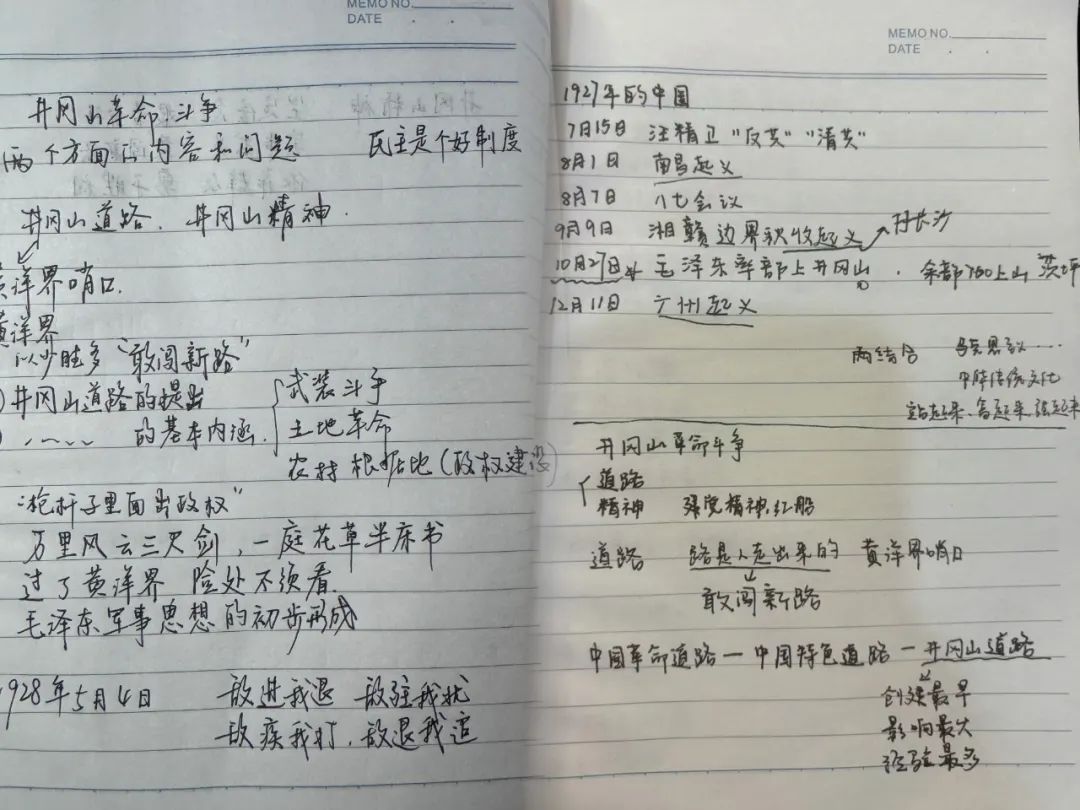 MEMO NO.
DATE . .
井冈山革命斗争
两个方面的内容和问题 民主是个好制度
井冈山道路、井冈山精神.
黄洋界哨口.
黄洋界
以少胜多 "敢闯新路"
井冈山道路的提出
〃 的基本内涵. 武装斗争
土地革命
农村根据地(政权建设)
"枪杆子里面出政权"
万里风云三尺剑,一庭花草半床书
过了黄洋界 险处不须看.
毛泽东军事思想的初步形成
1928年5月4日 敌进我退 敌驻我扰
敌疲我打,敌退我追
MEMO NO.
DATE . .
1927年的中国
7月15日 汪精卫"反共""清共"
8月1日 南昌起义
8月7日 八七会议
9月9日 湘赣边界秋收起义 打长沙
10月27日 毛泽东率部上井冈山. 余部700上山 茨坪
12月11日 广州起义
两结合
中华传统文化
站起来、富起来、强起来
井冈山革命斗争
道路
精神 建党精神.红船
道路 路是人走出来的 黄洋界哨口
敢闯新路
中国革命道路—中国特色道路—井冈山道路
创建最早
影响最大
经验最多